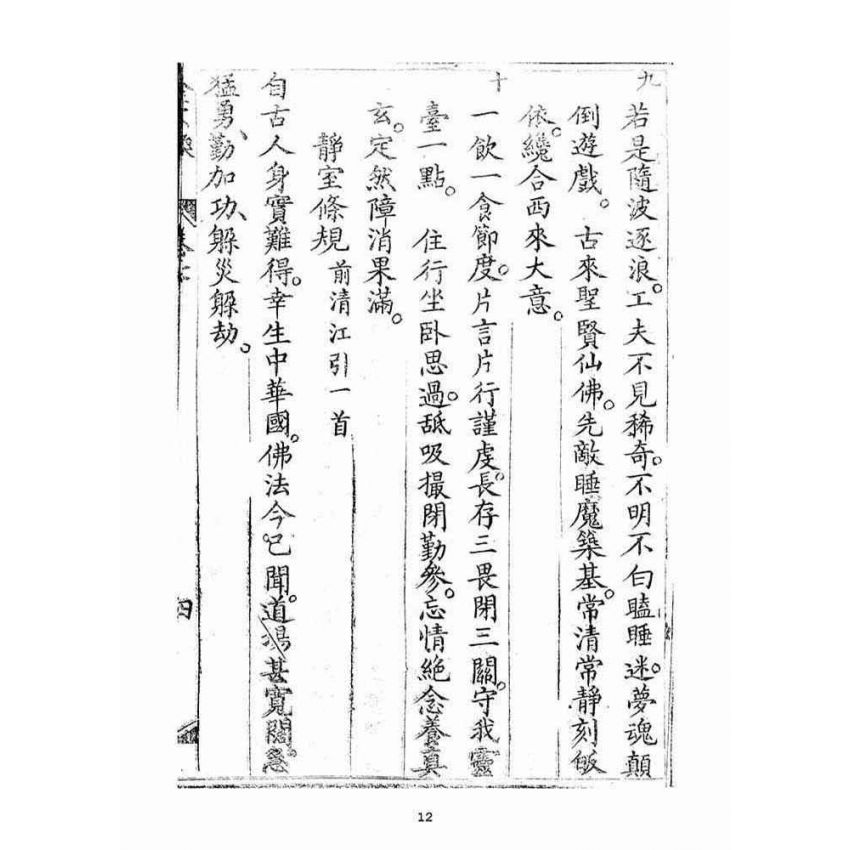 九
若是隨波逐浪。工夫不見稀奇。不明不白瞌睡迷。夢魂顛
倒遊戲。古來聖賢仙佛。先敵睡魔築基。常清常靜刻皈
依。纔合西來大意。
十
一飲一食節度。片言片行謹虔。長存三畏閉三關。守我靈
臺一點。住行坐卧思過。舐吸撮閉勤參。忘情絕念養真
玄。定然障消果滿。
靜室條規 前清江引一首
自古人身實難得。幸生中華國。佛法今已聞。道場甚寬闊。急
猛勇、勤加功、躲災躲劫。
四
12